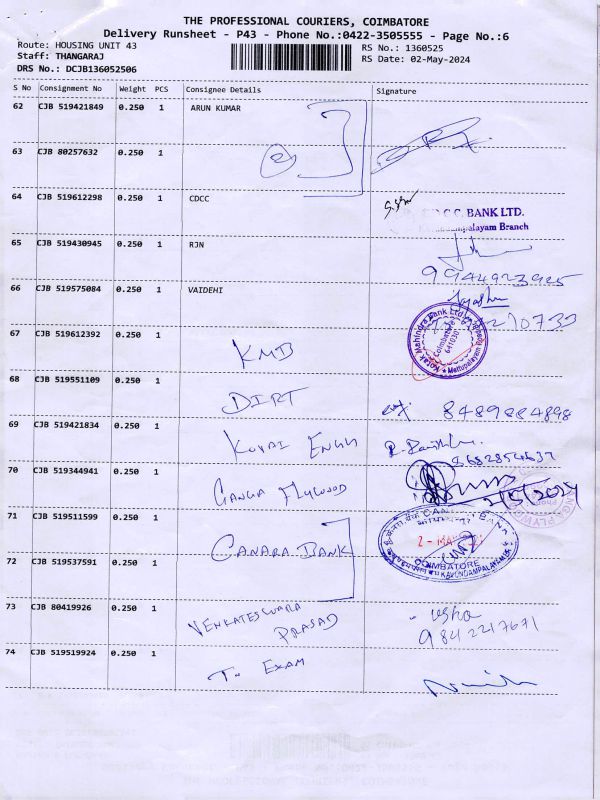 THE PROFESSIONAL COURIERS, COIMBATORE
Delivery Runsheet - P43 - Phone No.:0422-3505555 - Page No.:6
Route: HOUSING UNIT 43 RS No.: 1360525
Staff: THANGARAJ RS Date: 02-May-2024
DRS No.: DCJB136052506
S No Consignment No Weight PCS Consignee Details Signature
62 CJB 519421849 0.250 1 ARUN KUMAR
63 CJB 80257632 0.250 1
64 CJB 519612298 0.250 1 CDCC
C.D.C.C. BANK LTD.
Branch
65 CJB 519430945 0.250 1 RJN
9944923985
66 CJB 519575084 0.250 1 VAIDEHI
67 CJB 519612392 0.250 1 KMB
Kotak Mahindra Bank Ltd
Coimbatore
Mettupalayam Rd
68 CJB 519551109 0.250 1 DIRT 8489884898
69 CJB 519421834 0.250 1 KOVAI ENGG
70 CJB 519344941 0.250 1 GANGA PLYWOOD 2/5/2024
71 CJB 519511599 0.250 1 CANARA BANK
CANARA BANK
COIMBATORE
KAVUNDAMPALAYAM
72 CJB 519537591 0.250 1
73 CJB 80419926 0.250 1 VENKATESWARA PRASAD usha
9842217671
74 CJB 519519924 0.250 1 EXAM